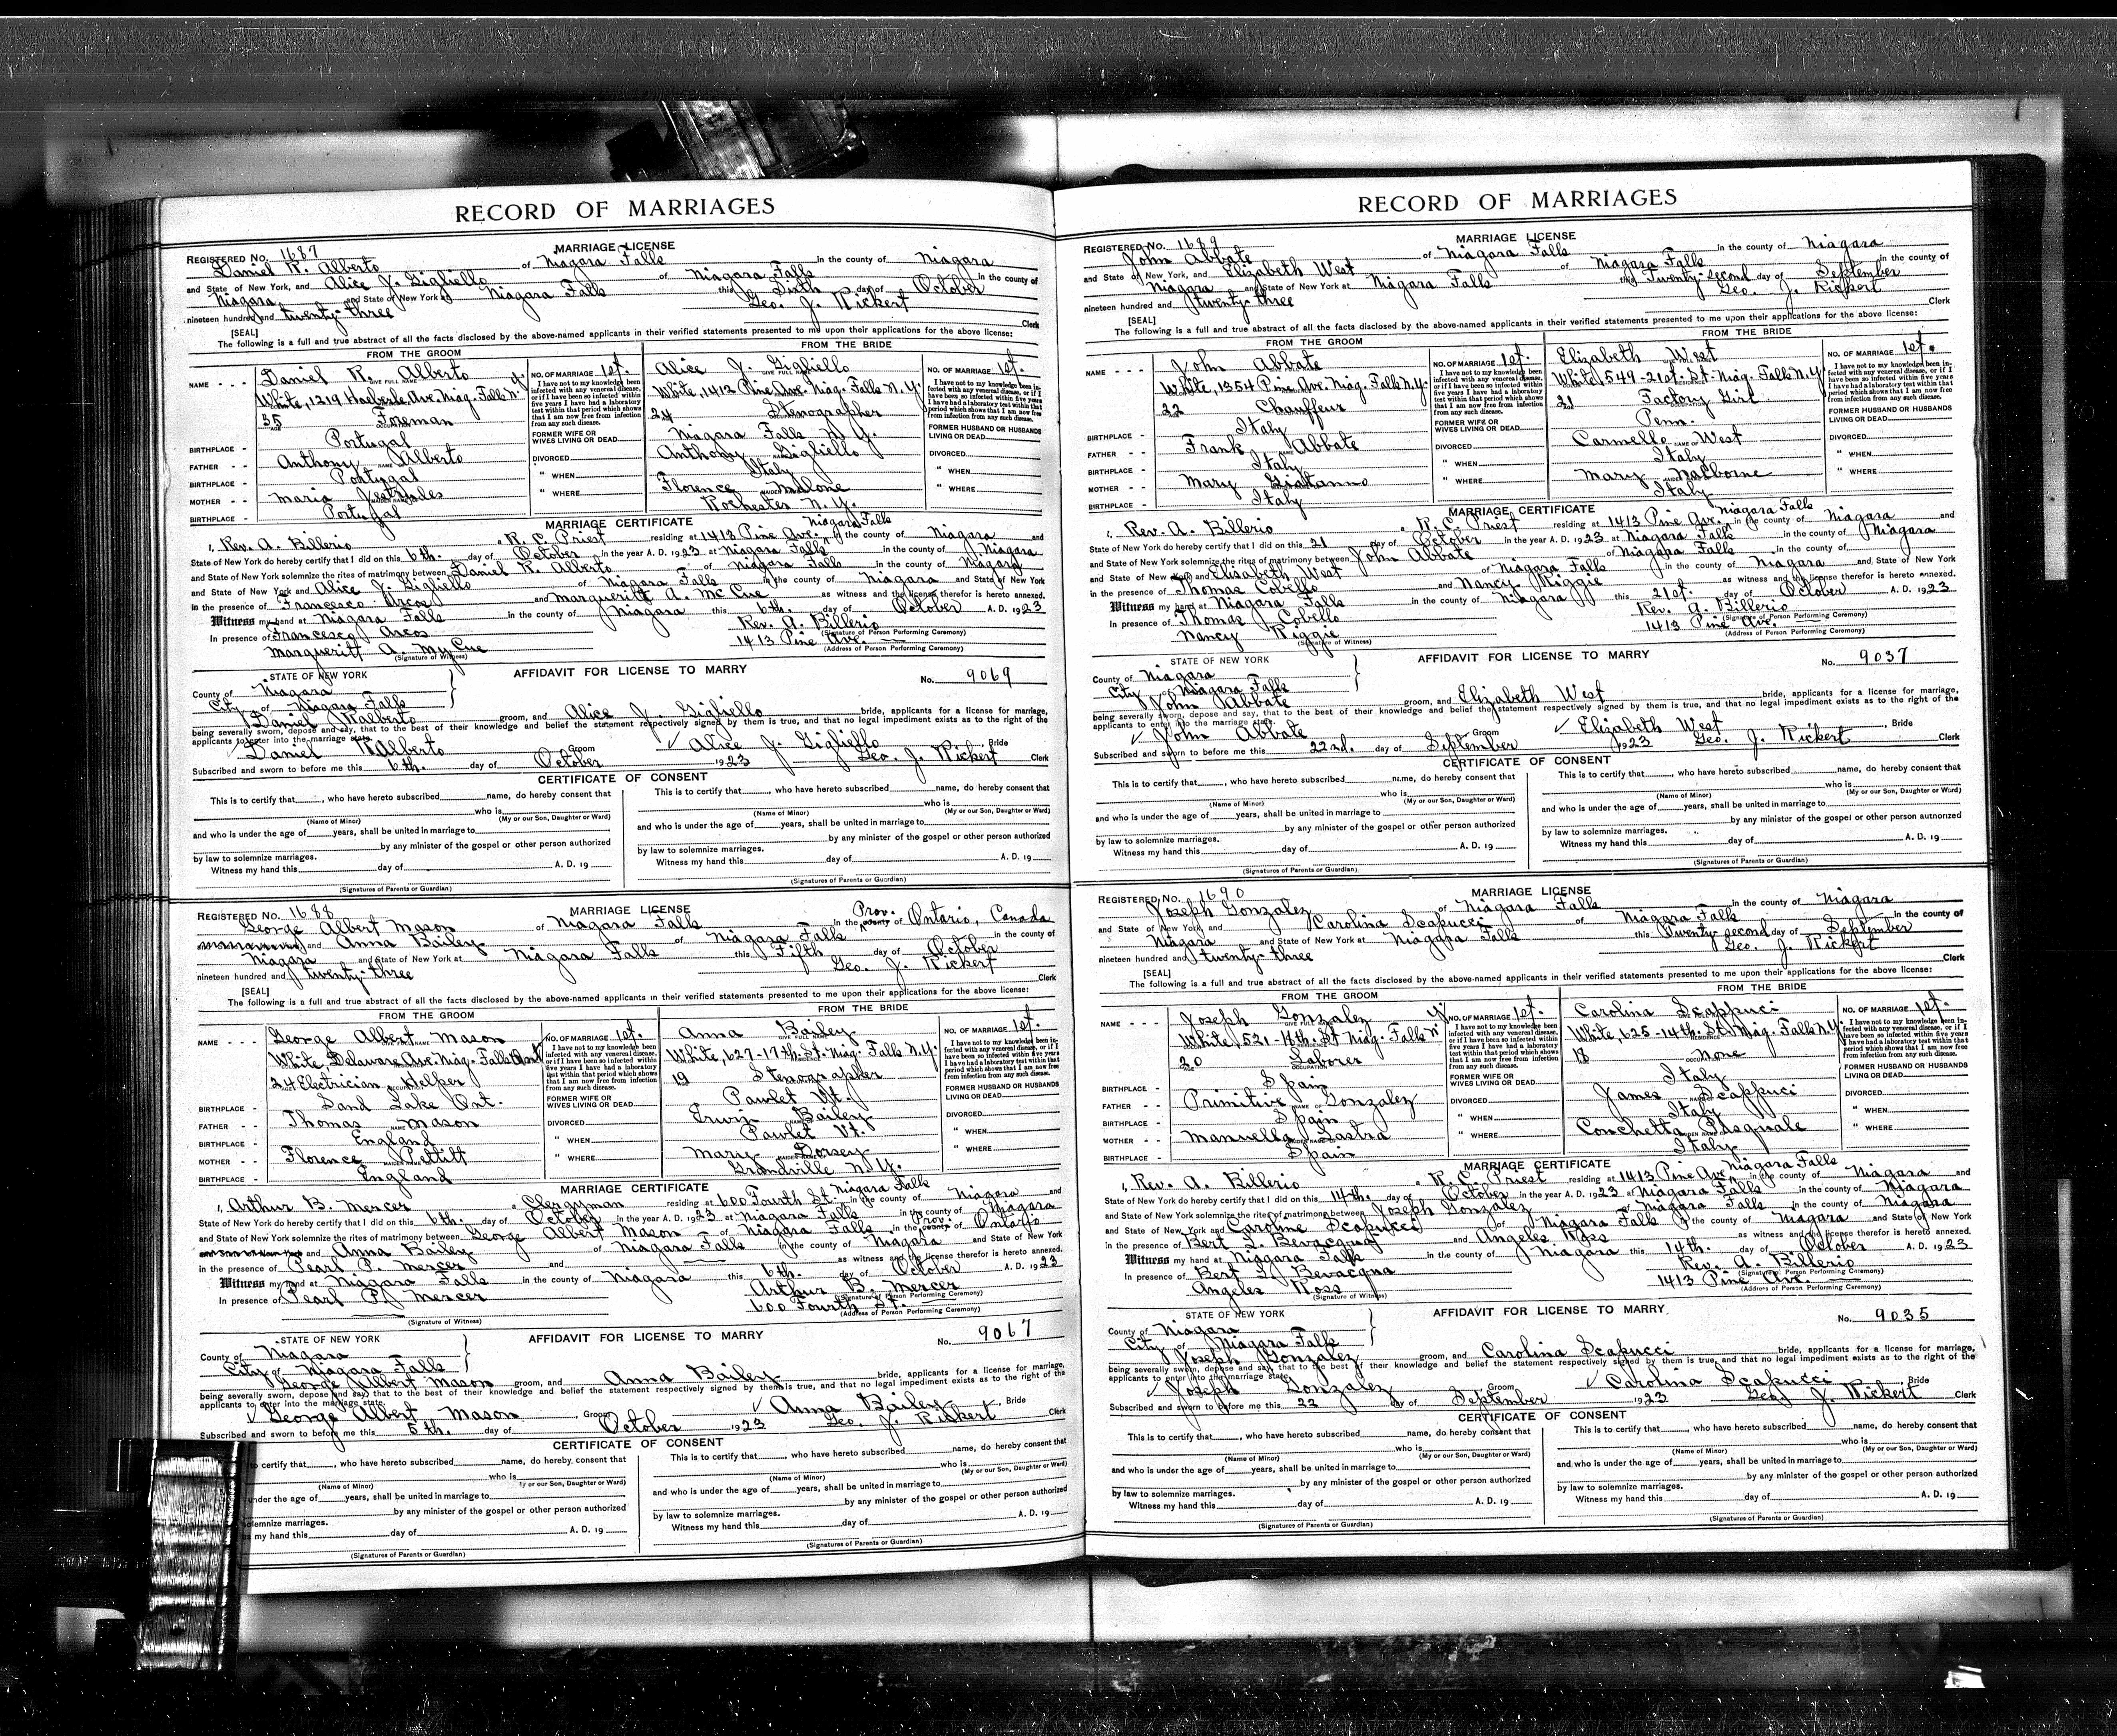 RECORD OF MARRIAGES
REGISTERED No. 1687
MARRIAGE LICENSE
Daniel R. Alberto of Niagara Falls in the county of Niagara
and State of New York, and Alice J. Gigliello of Niagara Falls in the county of
Niagara and State of New York at Niagara Falls this Sixth day of October
nineteen hundred and twenty-three Geo. J. Rickert
[SEAL] Clerk
The following is a full and true abstract of all the facts disclosed by the above-named applicants in their verified statements presented to me upon their applications for the above license:
FROM THE GROOM
NAME - - - Daniel R. Alberto
White, 1219 Ave. Niag. Falls N.Y.
35 Foreman
BIRTHPLACE - Portugal
FATHER - - Anthony Alberto
BIRTHPLACE - Portugal
MOTHER - - Maria
BIRTHPLACE - Portugal
NO. OF MARRIAGE 1st.
I have not to my knowledge been infected with any venereal disease, or if I have been so infected within five years I have had a laboratory test within that period which shows that I am now free from infection from any such disease.
FORMER WIFE OR WIVES LIVING OR DEAD
DIVORCED
" WHEN
" WHERE
FROM THE BRIDE
Alice J. Gigliello
White, 1413 Pine Ave. Niag. Falls N.Y.
24 Stenographer
Niagara Falls N.Y.
Anthony Gigliello
Italy
Florence Malone
Rochester N.Y.
NO. OF MARRIAGE 1st.
I have not to my knowledge been infected with any venereal disease, or if I have been so infected within five years I have had a laboratory test within that period which shows that I am now free from infection from any such disease.
FORMER HUSBAND OR HUSBANDS LIVING OR DEAD
DIVORCED
" WHEN
" WHERE
MARRIAGE CERTIFICATE
I, Rev. A. Billerio a R. C. Priest residing at 1413 Pine Ave. Niagara Falls in the county of Niagara and
State of New York do hereby certify that I did on this 6th. day of October in the year A. D. 1923 at Niagara Falls in the county of Niagara
and State of New York solemnize the rites of matrimony between Daniel R. Alberto of Niagara Falls in the county of Niagara
and State of New York and Alice J. Gigliello of Niagara Falls in the county of Niagara and State of New York
in the presence of Francesco Arcos and Margueritt A. Mc Cue as witness and the license therefor is hereto annexed.
Witness my hand at Niagara Falls in the county of Niagara this 6th. day of October A. D. 1923
In presence of Francesco Arcos Rev. A. Billerio
(Signature of Person Performing Ceremony)
Margueritt A. MyCue 1413 Pine Ave.
(Signature of Witness) (Address of Person Performing Ceremony)
STATE OF NEW YORK
AFFIDAVIT FOR LICENSE TO MARRY
No. 9069
County of Niagara
City of Niagara Falls
Daniel Ralberto groom, and Alice J. Gigliello bride, applicants for a license for marriage,
being severally sworn, depose and say, that to the best of their knowledge and belief the statement respectively signed by them is true, and that no legal impediment exists as to the right of the
applicants to enter into the marriage state.
✓ Daniel Ralberto Groom ✓ Alice J. Gigliello Bride
Subscribed and sworn to before me this 6th. day of October 1923 Geo. J. Rickert Clerk
CERTIFICATE OF CONSENT
This is to certify that, who have hereto subscribed name, do hereby consent that
who is
(Name of Minor) (My or our Son, Daughter or Ward)
and who is under the age of years, shall be united in marriage to
by any minister of the gospel or other person authorized
by law to solemnize marriages.
Witness my hand this day of A. D. 19
(Signatures of Parents or Guardian)
This is to certify that, who have hereto subscribed name, do hereby consent that
who is
(Name of Minor) (My or our Son, Daughter or Ward)
and who is under the age of years, shall be united in marriage to
by any minister of the gospel or other person authorized
by law to solemnize marriages.
Witness my hand this day of A. D. 19
(Signatures of Parents or Guardian)
REGISTERED No. 1688
MARRIAGE LICENSE
George Albert Mason of Niagara Falls in the Prov. county of Ontario, Canada
and Anna Bailey of Niagara Falls in the county of
Niagara and State of New York at Niagara Falls this Fifth day of October
nineteen hundred and twenty-three Geo. J. Rickert
[SEAL] Clerk
The following is a full and true abstract of all the facts disclosed by the above-named applicants in their verified statements presented to me upon their applications for the above license:
FROM THE GROOM
NAME - - - George Albert Mason
White, Delaware Ave. Niag. Falls Ont.
24 Electrician Helper
BIRTHPLACE - Sand Lake Ont.
FATHER - - Thomas Mason
BIRTHPLACE - England
MOTHER - - Florence Pettitt
BIRTHPLACE - England
NO. OF MARRIAGE 1st.
I have not to my knowledge been infected with any venereal disease, or if I have been so infected within five years I have had a laboratory test within that period which shows that I am now free from infection from any such disease.
FORMER WIFE OR WIVES LIVING OR DEAD
DIVORCED
" WHEN
" WHERE
FROM THE BRIDE
Anna Bailey
White, 627-17th. St. Niag. Falls N.Y.
19 Stenographer
Pawlet Vt.
Erwin Bailey
Pawlet Vt.
Mary Dorsey
Grandville N.Y.
NO. OF MARRIAGE 1st.
I have not to my knowledge been infected with any venereal disease, or if I have been so infected within five years I have had a laboratory test within that period which shows that I am now free from infection from any such disease.
FORMER HUSBAND OR HUSBANDS LIVING OR DEAD
DIVORCED
" WHEN
" WHERE
MARRIAGE CERTIFICATE
I, Arthur B. Mercer a Clergyman residing at 600 Fourth St. Niagara Falls in the county of Niagara and
State of New York do hereby certify that I did on this 6th. day of October in the year A. D. 1923 at Niagara Falls in the county of Niagara
and State of New York solemnize the rites of matrimony between George Albert Mason of Niagara Falls in the Prov. county of Ontario
and Anna Bailey of Niagara Falls in the county of Niagara and State of New York
in the presence of Pearl P. Mercer and as witness and the license therefor is hereto annexed.
Witness my hand at Niagara Falls in the county of Niagara this 6th. day of October A. D. 1923
In presence of Pearl P. Mercer Arthur B. Mercer
(Signature of Person Performing Ceremony)
600 Fourth St.
(Signature of Witness) (Address of Person Performing Ceremony)
STATE OF NEW YORK
AFFIDAVIT FOR LICENSE TO MARRY
No. 9067
County of Niagara
City of Niagara Falls
George Albert Mason groom, and Anna Bailey bride, applicants for a license for marriage,
being severally sworn, depose and say, that to the best of their knowledge and belief the statement respectively signed by them is true, and that no legal impediment exists as to the right of the
applicants to enter into the marriage state.
✓ George Albert Mason, Groom ✓ Anna Bailey, Bride
Subscribed and sworn to before me this 5th. day of October 1923 Geo. J. Rickert Clerk
CERTIFICATE OF CONSENT
to certify that, who have hereto subscribed name, do hereby consent that
who is
(Name of Minor) y or our Son, Daughter or Ward)
under the age of years, shall be united in marriage to
by any minister of the gospel or other person authorized
solemnize marriages.
my hand this day of A. D. 19
(Signatures of Parents or Guardian)
This is to certify that, who have hereto subscribed name, do hereby consent that
who is
(Name of Minor) (My or our Son, Daughter or Ward)
and who is under the age of years, shall be united in marriage to
by any minister of the gospel or other person authorized
by law to solemnize marriages.
Witness my hand this day of A. D. 19
(Signatures of Parents or Guardian)
RECORD OF MARRIAGES
REGISTERED No. 1689
MARRIAGE LICENSE
John Abbate of Niagara Falls in the county of Niagara
and State of New York, and Elizabeth West of Niagara Falls in the county of
Niagara and State of New York at Niagara Falls this Twenty-second day of September
nineteen hundred and twenty-three Geo. J. Rickert
[SEAL] Clerk
The following is a full and true abstract of all the facts disclosed by the above-named applicants in their verified statements presented to me upon their applications for the above license:
FROM THE GROOM
NAME - - - John Abbate
White, 1354 Pine Ave. Niag. Falls N.Y.
22 Chauffeur
BIRTHPLACE - Italy
FATHER - - Frank Abbate
BIRTHPLACE - Italy
MOTHER - - Mary
BIRTHPLACE - Italy
NO. OF MARRIAGE 1st.
I have not to my knowledge been infected with any venereal disease, or if I have been so infected within five years I have had a laboratory test within that period which shows that I am now free from infection from any such disease.
FORMER WIFE OR WIVES LIVING OR DEAD
DIVORCED
" WHEN
" WHERE
FROM THE BRIDE
Elizabeth West
White, 549-21st. St. Niag. Falls N.Y.
21 Factory Girl
Penn.
Carmello West
Italy
Mary Malborne
Italy
NO. OF MARRIAGE 1st.
I have not to my knowledge been infected with any venereal disease, or if I have been so infected within five years I have had a laboratory test within that period which shows that I am now free from infection from any such disease.
FORMER HUSBAND OR HUSBANDS LIVING OR DEAD
DIVORCED
" WHEN
" WHERE
MARRIAGE CERTIFICATE
I, Rev. A. Billerio a R. C. Priest residing at 1413 Pine Ave. Niagara Falls in the county of Niagara and
State of New York do hereby certify that I did on this 21 day of October in the year A. D. 1923 at Niagara Falls in the county of Niagara
and State of New York solemnize the rites of matrimony between John Abbate of Niagara Falls in the county of
and State of New York and Elisabeth West of Niagara Falls in the county of Niagara and State of New York
in the presence of Thomas Cobello and Nancy Riggie as witness and the license therefor is hereto annexed.
Witness my hand at Niagara Falls in the county of Niagara this 21st. day of October A. D. 1923
In presence of Thomas J. Cobello Rev. A. Billerio
(Signature of Person Performing Ceremony)
Nancy Riggie 1413 Pine Ave.
(Signature of Witness) (Address of Person Performing Ceremony)
STATE OF NEW YORK
AFFIDAVIT FOR LICENSE TO MARRY
No. 9037
County of Niagara
City of Niagara Falls
John Abbate groom, and Elizabeth West bride, applicants for a license for marriage,
being severally sworn, depose and say, that to the best of their knowledge and belief the statement respectively signed by them is true, and that no legal impediment exists as to the right of the
applicants to enter into the marriage state.
✓ John Abbate Groom ✓ Elizabeth West, Bride
Subscribed and sworn to before me this 22nd. day of September 1923 Geo. J. Rickert Clerk
CERTIFICATE OF CONSENT
This is to certify that, who have hereto subscribed name, do hereby consent that
who is
(Name of Minor) (My or our Son, Daughter or Ward)
and who is under the age of years, shall be united in marriage to
by any minister of the gospel or other person authorized
by law to solemnize marriages.
Witness my hand this day of A. D. 19
(Signatures of Parents or Guardian)
This is to certify that, who have hereto subscribed name, do hereby consent that
who is
(Name of Minor) (My or our Son, Daughter or Ward)
and who is under the age of years, shall be united in marriage to
by any minister of the gospel or other person authorized
by law to solemnize marriages.
Witness my hand this day of A. D. 19
(Signatures of Parents or Guardian)
REGISTERED No. 1690
MARRIAGE LICENSE
Joseph Gonzalez of Niagara Falls in the county of Niagara
and State of New York, and Carolina Scapucci of Niagara Falls in the county of
Niagara and State of New York at Niagara Falls this Twenty-second day of September
nineteen hundred and twenty-three Geo. J. Rickert
[SEAL] Clerk
The following is a full and true abstract of all the facts disclosed by the above-named applicants in their verified statements presented to me upon their applications for the above license:
FROM THE GROOM
NAME - - - Joseph Gonzalez
White, 521-14th. St Niag. Falls N.Y.
20 Laborer
BIRTHPLACE - Spain
FATHER - - Primitive Gonzalez
BIRTHPLACE - Spain
MOTHER - - Manuella Sastra
BIRTHPLACE - Spain
NO. OF MARRIAGE 1st.
I have not to my knowledge been infected with any venereal disease, or if I have been so infected within five years I have had a laboratory test within that period which shows that I am now free from infection from any such disease.
FORMER WIFE OR WIVES LIVING OR DEAD
DIVORCED
" WHEN
" WHERE
FROM THE BRIDE
Carolina Scappucci
White, 625-14th. St. Niag. Falls N.Y.
18 None
Italy
James Scappuci
Italy
Conchetta Pasquale
Italy
NO. OF MARRIAGE 1st.
I have not to my knowledge been infected with any venereal disease, or if I have been so infected within five years I have had a laboratory test within that period which shows that I am now free from infection from any such disease.
FORMER HUSBAND OR HUSBANDS LIVING OR DEAD
DIVORCED
" WHEN
" WHERE
MARRIAGE CERTIFICATE
I, Rev. A. Billerio a R. C. Priest residing at 1413 Pine Ave Niagara Falls in the county of Niagara and
State of New York do hereby certify that I did on this 14th. day of October in the year A. D. 1923 at Niagara Falls in the county of Niagara
and State of New York solemnize the rites of matrimony between Joseph Gonzalez of Niagara Falls in the county of Niagara
and State of New York and Caroline Scapucci of Niagara Falls in the county of Niagara and State of New York
in the presence of Bert L. Bevacqua and Angeles Ross as witness and the license therefor is hereto annexed.
Witness my hand at Niagara Falls in the county of Niagara this 14th. day of October A. D. 1923
In presence of Bert L. Bevacqna Rev. A. Billerio
(Signature of Person Performing Ceremony)
Angeles Ross 1413 Pine Ave.
(Signature of Witness) (Address of Person Performing Ceremony)
STATE OF NEW YORK
AFFIDAVIT FOR LICENSE TO MARRY
No. 9035
County of Niagara
City of Niagara Falls
Joseph Gonzalez groom, and Carolina Scapucci bride, applicants for a license for marriage,
being severally sworn, depose and say, that to the best of their knowledge and belief the statement respectively signed by them is true, and that no legal impediment exists as to the right of the
applicants to enter into the marriage state.
✓ Joseph Gonzalez Groom ✓ Carolina Scapucci, Bride
Subscribed and sworn to before me this 22 day of September 1923 Geo. J. Rickert Clerk
CERTIFICATE OF CONSENT
This is to certify that, who have hereto subscribed name, do hereby consent that
who is
(Name of Minor) (My or our Son, Daughter or Ward)
and who is under the age of years, shall be united in marriage to
by any minister of the gospel or other person authorized
by law to solemnize marriages.
Witness my hand this day of A. D. 19
(Signatures of Parents or Guardian)
This is to certify that, who have hereto subscribed name, do hereby consent that
who is
(Name of Minor) (My or our Son, Daughter or Ward)
and who is under the age of years, shall be united in marriage to
by any minister of the gospel or other person authorized
by law to solemnize marriages.
Witness my hand this day of A. D. 19
(Signatures of Parents or Guardian)